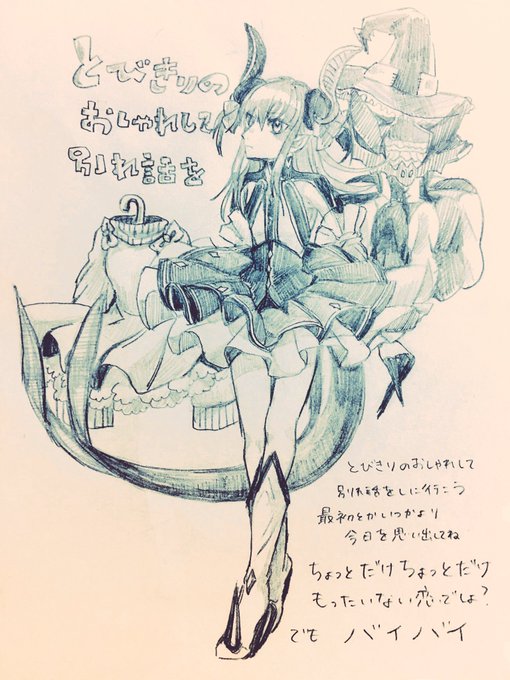 とびきりの
おしゃれして
別れ話を
とびきりのおしゃれして
別れ話をしに行こう
最初とかいつかより
今日を思い出してね
ちょっとだけちょっとだけ
もったいない恋でしょ?
でも バイバイ